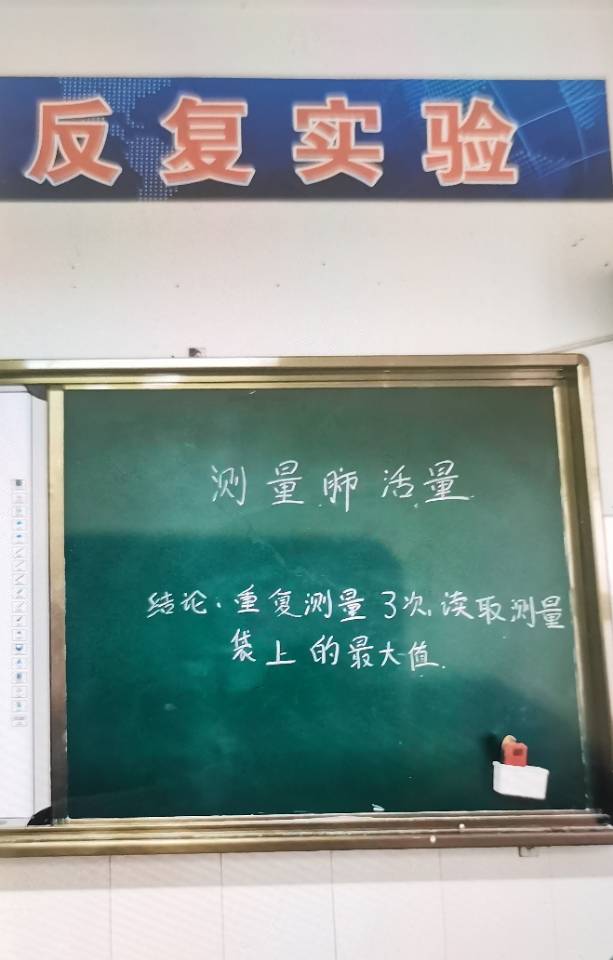 反复实验
测量肺活量
结论：重复测量3次，读取测量
袋上的最大值.